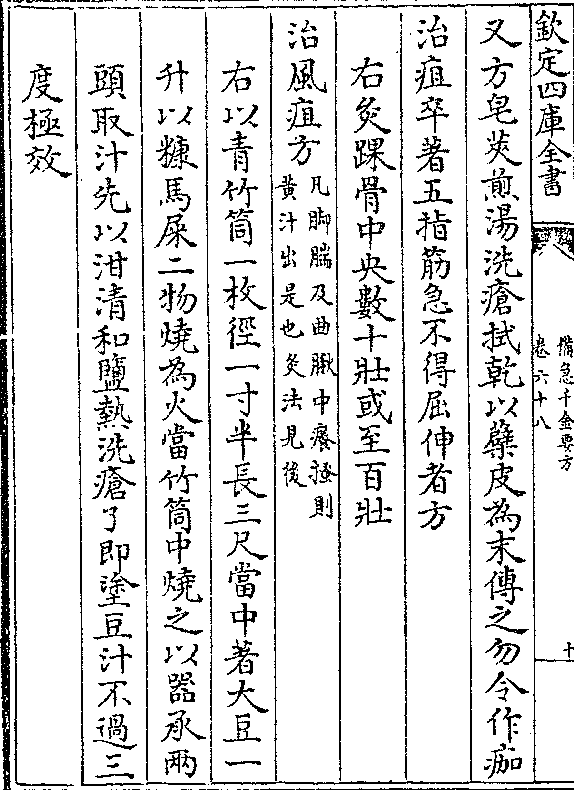 欽定四庫全書
備急千金要方
卷六十八
十
又方皂莢煎湯洗瘡拭乾以蘗皮為末傅之勿令作痂
治疽卒著五指筋急不得屈伸者方
右灸踝骨中央數十壯或至百壯
治風疽方
凡脚腨及曲䐐中癢搔則
黃汁出是也灸法見後
右以青竹筒一枚徑一寸半長三尺當中著大豆一
升以糠馬屎二物燒為火當竹筒中燒之以器承兩
頭取汁先以泔清和鹽熱洗瘡了即塗豆汁不過三
度極效